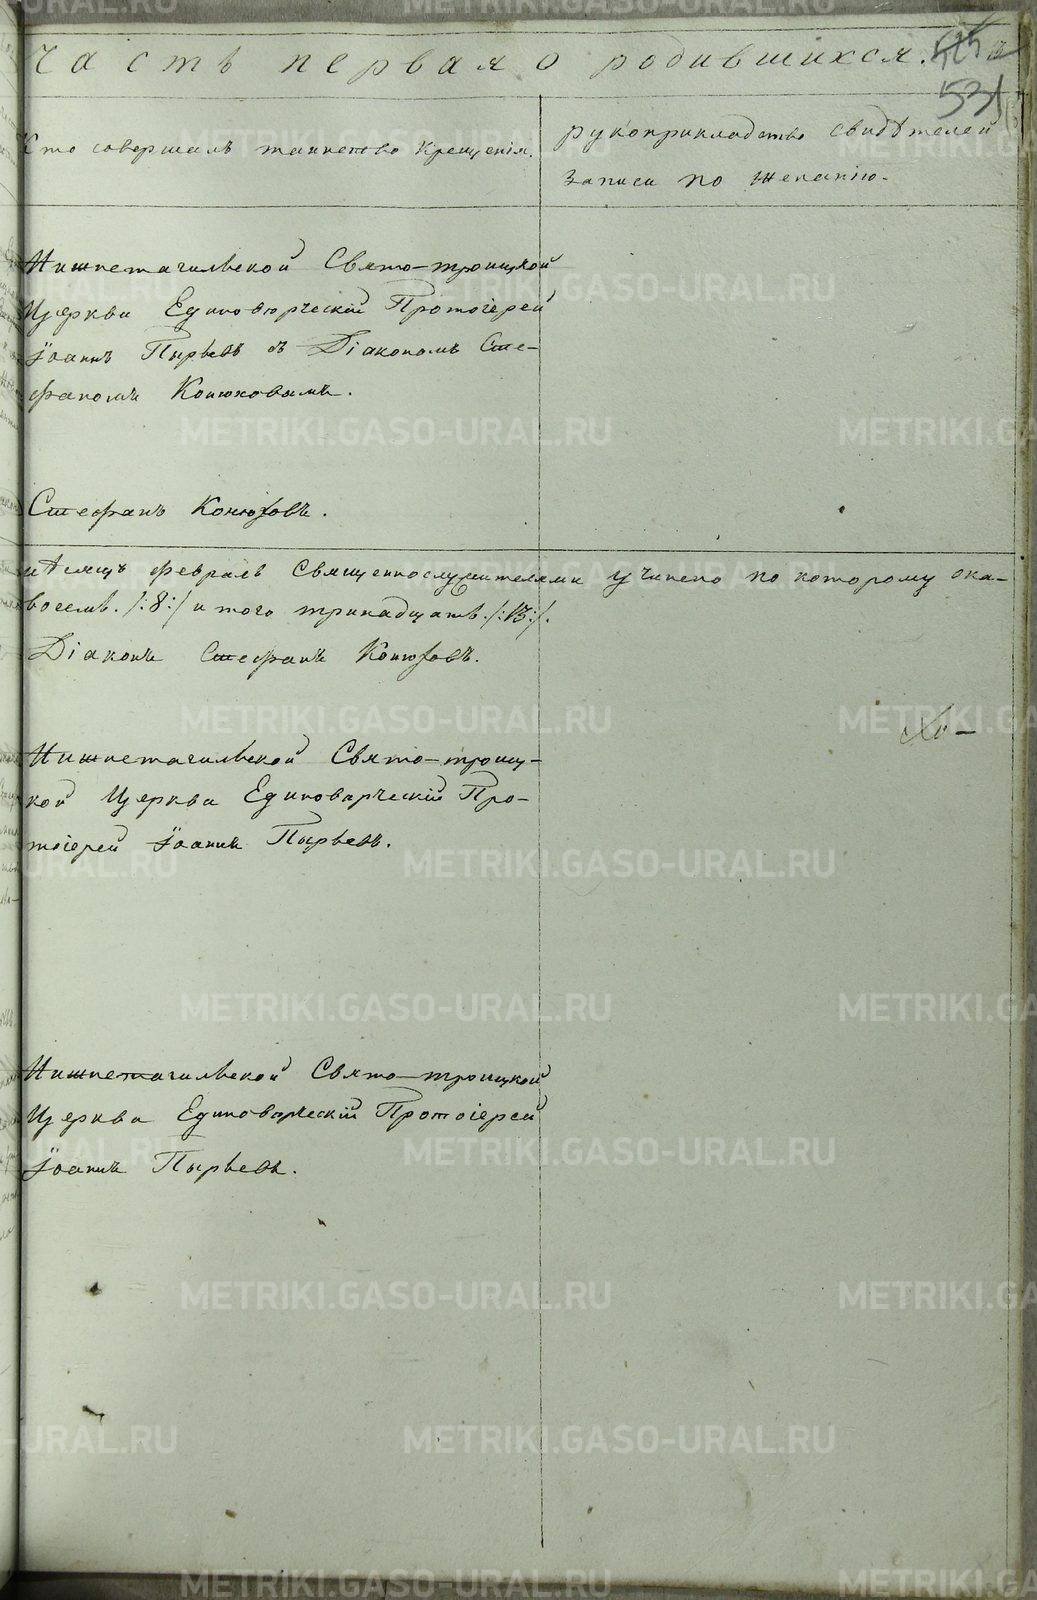 Часть первая о родившихся.
531
Кто совершалъ таинство Крещенія.
рукоприкладство свидѣтелей
записи по желанію.
Нижнетагильской Свято-троицкой
Церкви Единовѣрческій Протоіерей
Іоаннъ Пырьевъ съ Діакономъ Сте-
фаномъ Конюховымъ.
Стефанъ Конюховъ.
мѣсяцъ февраль Священнослужителями учинено по которому ока-
восемь. /:8:/ итого тринадцать. /:13:/.
Діаконъ Стефанъ Конюховъ.
Нижнетагильской Свято-троиц-
кой Церкви Единоварческій Про-
тоіерей Іоаннъ Пырьевъ.
Нижнетагильской Свято-троицкой
Церкви Единоварческій Протоіерей
Іоаннъ Пырьевъ.
METRIKI.GASO-URAL.RU